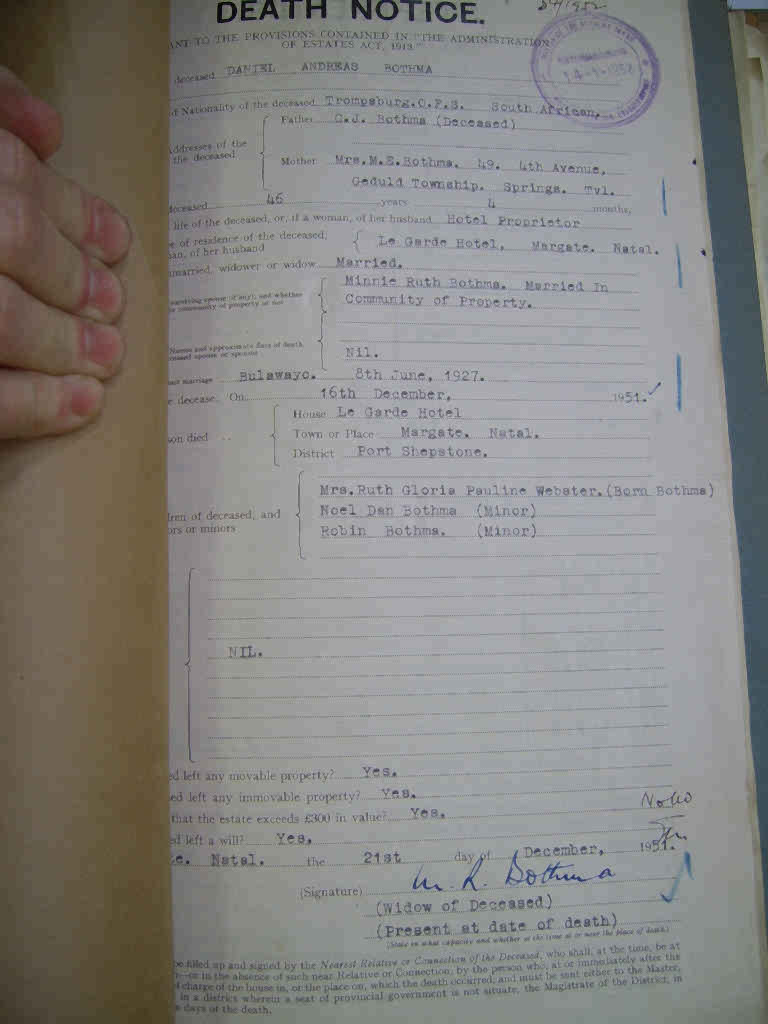 DEATH NOTICE.
ANT TO THE PROVISIONS CONTAINED IN "THE ADMINISTRATION
OF ESTATES ACT, 1913."
deceased DANIEL ANDREAS BOTHMA
d Nationality of the deceased Trompsburg.O.F.S. South African.
Father C.J. Bothma (Deceased)
Addresses of the
the deceased
Mother Mrs.M.E.Bothma. 49. 4th Avenue,
Geduld Township. Springs. Tvl.
deceased 46 years 4 months,
life of the deceased, or, if a woman, of her husband Hotel Proprietor
e of residence of the deceased,
an, of her husband Le Garde Hotel, Margate. Natal.
unmarried, widower or widow Married.
surviving spouse (if any), and whether Minnie Ruth Bothma. Married In
community of property or not Community of Property.
Names and approximate date of death
ceased spouse or spouses Nil.
last marriage Bulawayo. 8th June, 1927.
e decease. On 16th December, 1951.
son died
House Le Garde Hotel
Town or Place Margate. Natal.
District Port Shepstone.
Mrs.Ruth Gloria Pauline Webster.(Born Bothma)
dren of deceased, and Noel Dan Bothma (Minor)
ors or minors Robin Bothma. (Minor)
NIL.
ed left any movable property? Yes.
ed left any immovable property? Yes.
that the estate exceeds £300 in value? Yes.
ed left a will? Yes.
te. Natal. the 21st day of December, 1951.
(Signature) M. R. Bothma
(Widow of Deceased)
(Present at date of death)
(State in what capacity and whether at the time at or near the place of death.)
be filled up and signed by the Nearest Relative or Connection of the Deceased, who shall, at the time, be at
—or in the absence of such near Relative or Connection, by the person who, at or immediately after the
d charge of the house in, or the place on, which the death occurred; and must be sent either to the Master,
in a district wherein a seat of provincial government is not situate, the Magistrate of the District, in
days of the death.